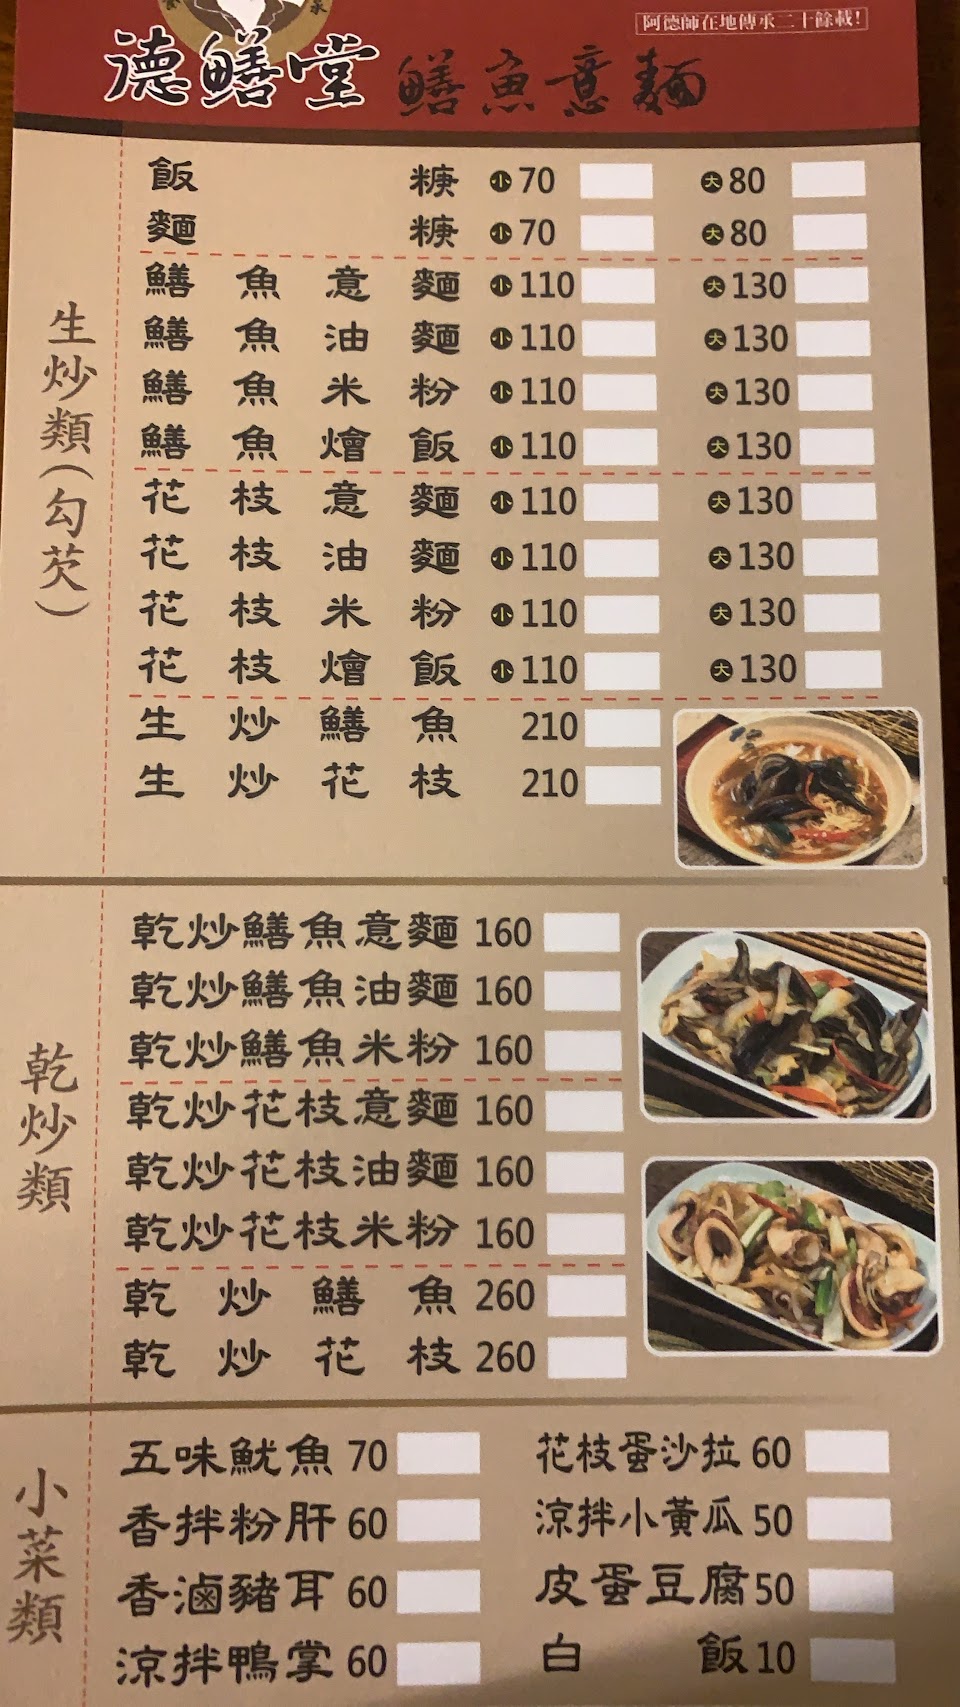 阿德師在地傳承二十餘載!
德鱔堂 鱔魚意麵
生炒類(勾芡)
飯糖 小70 大80
麵糖 小70 大80
鱔魚意麵 小110 大130
鱔魚油麵 小110 大130
鱔魚米粉 小110 大130
鱔魚燴飯 小110 大130
花枝意麵 小110 大130
花枝油麵 小110 大130
花枝米粉 小110 大130
花枝燴飯 小110 大130
生炒鱔魚 210
生炒花枝 210
乾炒類
乾炒鱔魚意麵 160
乾炒鱔魚油麵 160
乾炒鱔魚米粉 160
乾炒花枝意麵 160
乾炒花枝油麵 160
乾炒花枝米粉 160
乾炒鱔魚 260
乾炒花枝 260
小菜類
五味魷魚 70 花枝蛋沙拉 60
香拌粉肝 60 涼拌小黃瓜 50
香滷豬耳 60 皮蛋豆腐 50
涼拌鴨掌 60 白飯 10